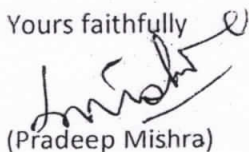 Yours faithfully
(Pradeep Mishra)